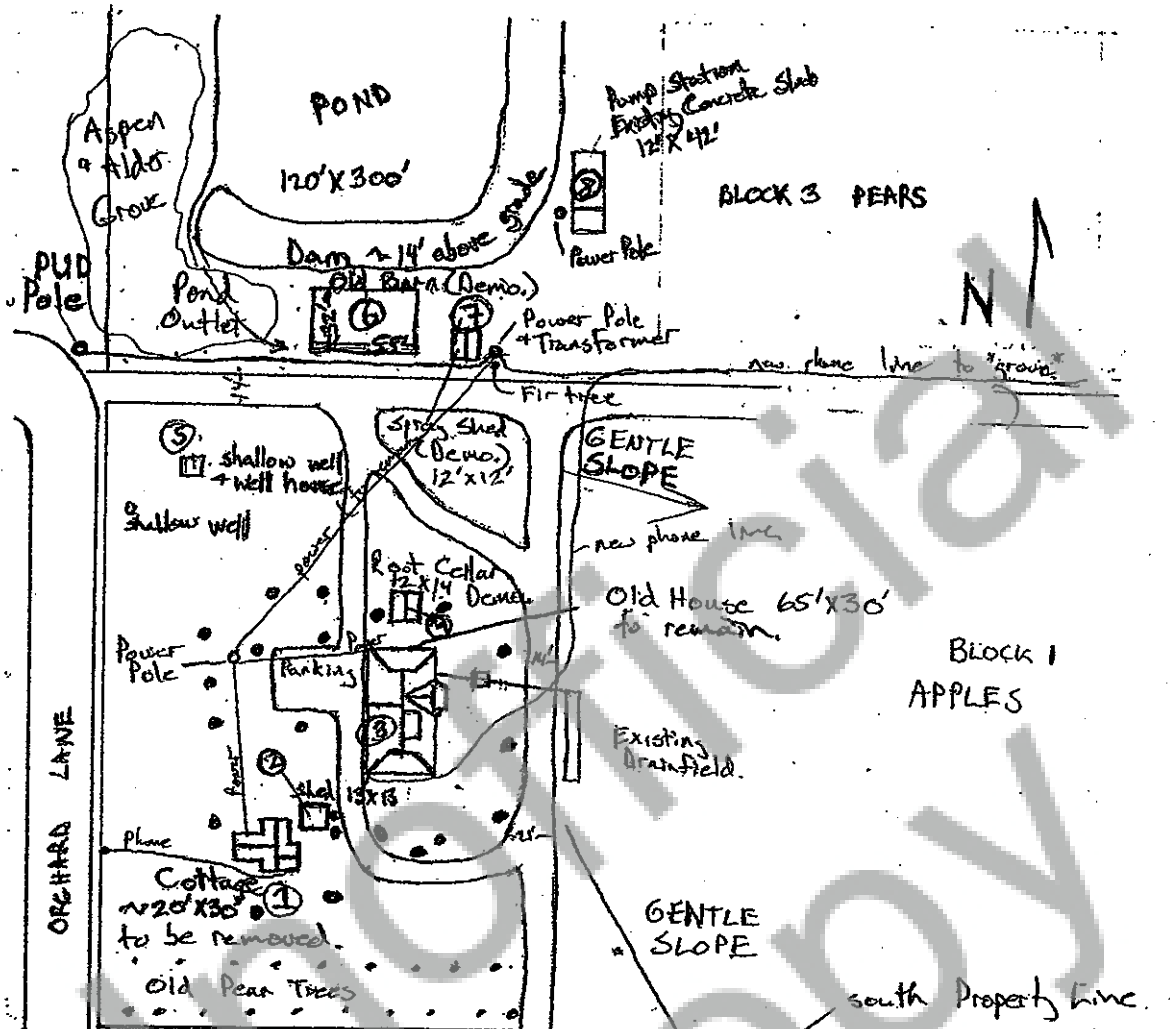 POND
120'X300'
Dam ~ 14' above grade
Aspen
& Alder
Grove
Pump Station
Existing Concrete Slab
12' X 42'
8
Power Pole
BLOCK 3 PEARS
N
PUD
Pole
Pond
Outlet
Old Barn (Demo.)
6
55'
7
Power Pole
& Transformer
Fir tree
new phone line to "group"
5
shallow well
& well house
shallow well
Spray Shed
(Demo.)
12'x12'
GENTLE
SLOPE
new phone line
power
Root Cellar
12 X 14
Demo.
4
Old House 65'X30'
to remain.
BLOCK 1
APPLES
Power
Pole
Power
Parking
3
Existing
Drainfield.
2
Shed 13x13
Power
Phone
ORCHARD LANE
Cottage
1
~20'X30'
to be removed.
Old Pear Trees
GENTLE
SLOPE
South Property Line.
unofficial
copy